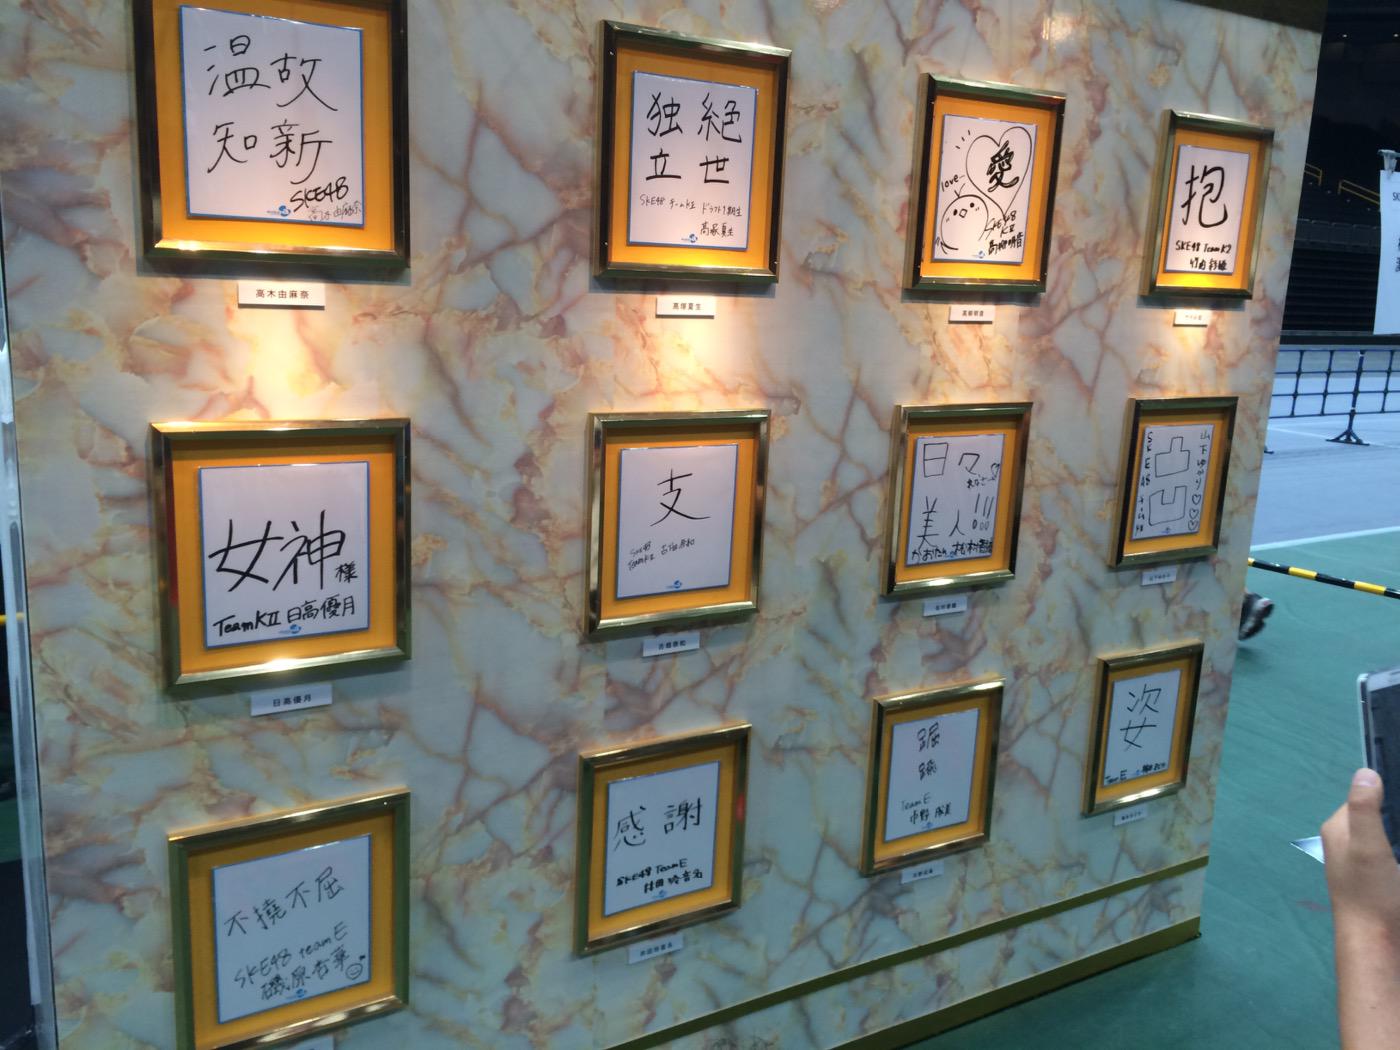 温故
知新
SKE48
高木由麻奈
独絶
立世
SKE48 チームKⅡ ドラフト1期生
髙塚夏生
髙塚夏生
love
愛
SKE48
KⅡ
高柳明音
高柳明音
抱
SKE48 Team K2
女神様
TeamKⅡ 日高優月
日高優月
支
SKE48
TeamKⅡ 古畑奈和
古畑奈和
日々
美人!!!
かおたん
凸凹
SKE48
山下ゆかり♡♡♡
不撓不屈
SKE48 teamE
磯原杏華
感謝
SKE48 TeamE
井田玲音名
井田玲音名
TeamE
次
女
Team E